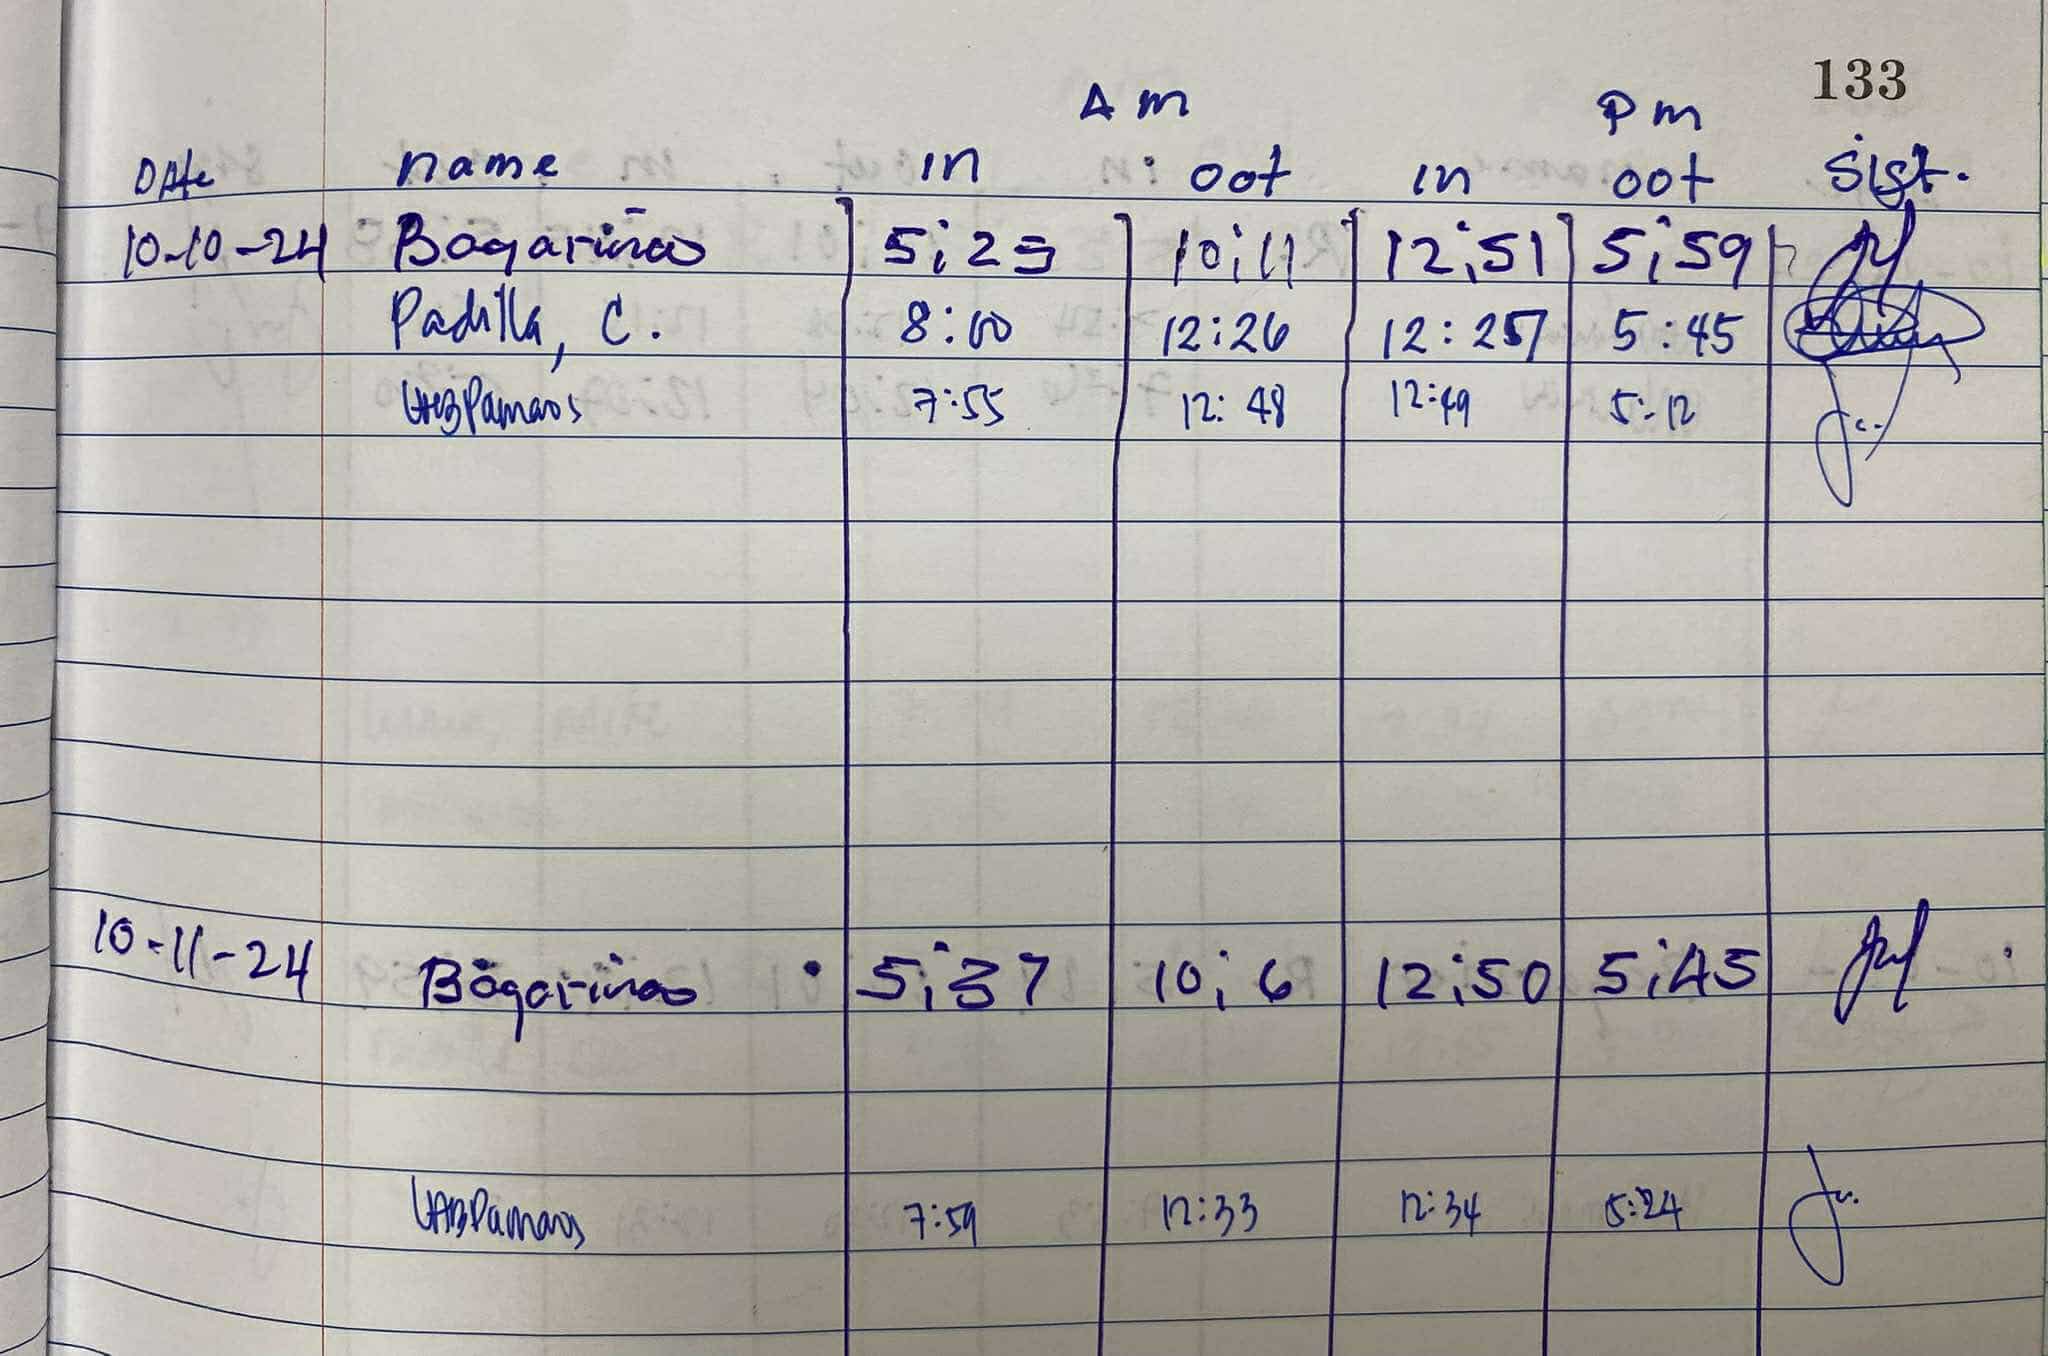 133
Am Pm
DAte name in oot in oot Sigt.
10-10-24 Bagariñao 5;23 10;11 12;51 5;59
Padilla, C. 8:00 12:26 12:27 5:45
7:55 12:48 12:49 5:12
10-11-24 Bagariñao 5;37 10;6 12;50 5;45
7:59 12:33 12:34 5:24